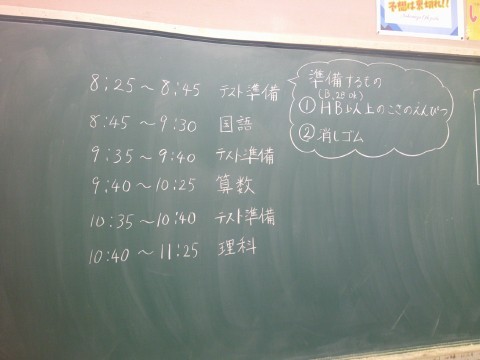 予想は裏切れ!!
い
8:25～8:45 テスト準備
8:45～9:30 国語
9:35～9:40 テスト準備
9:40～10:25 算数
10:35～10:40 テスト準備
10:40～11:25 理科
準備するもの
(B,2Bok)
①HB以上のこさのえんぴつ
②消しゴム